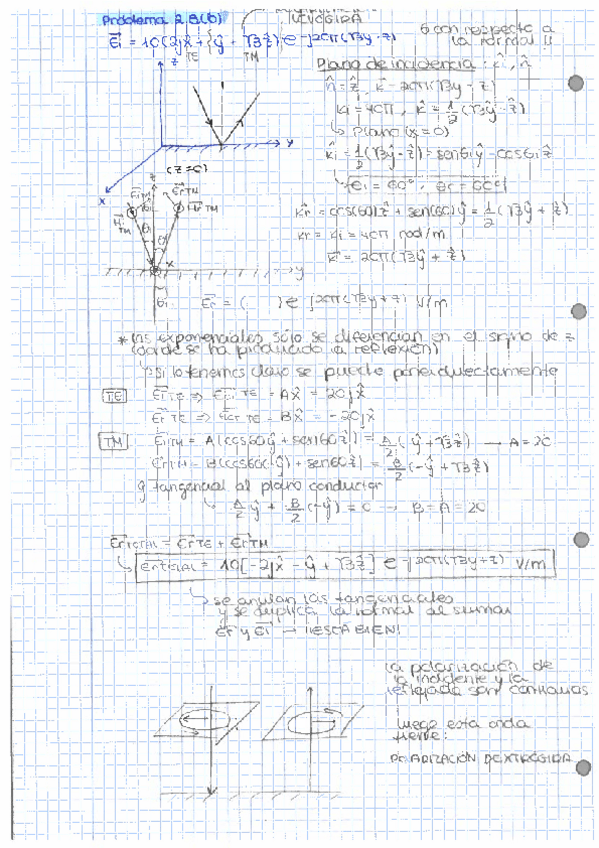 Problema 2.8(b)
LEVÓGIRA
Ei = 10(2jx̂ + ŷ + √3ẑ) e^-j20π(√3y - z)
TE TM
θ con respecto a
la normal !!
Plano de incidencia: k̂, n̂
n̂ = ẑ, k̄ = 20π(√3ŷ - ẑ)
ki = 40π, k̂ = 1/2 (√3ŷ - ẑ)
↳ Plano (x = 0)
k̂i = 1/2 (√3ŷ - ẑ) = senθi ŷ - cosθi ẑ
θi = 60°, θr = 60°
z
y
x
(z=0)
z
EiTM
ErTM
Hi TM
Hr TM
θi
x
y
k̂r = cos(60)ẑ + sen(60)ŷ = 1/2 (√3ŷ + ẑ)
kr = ki = 40π rad/m
k̄r = 20π(√3ŷ + ẑ)
Er = ( ) e^-j20π(√3y + z) V/m
* las exponenciales sólo se diferencian en el signo de z
(donde se ha producido la reflexión)
↳ si lo tenemos claro se puede poner directamente
TE EiTE ⇒ EiTE = Ax̂ = 20jx̂
ErTE ⇒ ErTE = Bx̂ = -20jx̂
TM EiTM = A(cos60ŷ + sen60ẑ) = A/2 (ŷ + √3ẑ) → A = 20
ErTM = B(cos60(-ŷ) + sen60ẑ) = B/2 (-ŷ + √3ẑ)
y tangencial al plano conductor
↳ A/2 ŷ + B/2 (-ŷ) = 0 → B = A = 20
Er TOTAL = ErTE + ErTM
↳ ErTOTAL = 10[-2jx̂ - ŷ + √3ẑ] e^-j20π(√3y + z) V/m
↳ se anulan las tangenciales
y se duplica la normal al sumar
Er y Ei → ¡¡ESTÁ BIEN!
la polarización de
la incidente y la
reflejada son contrarias
luego esta onda
tiene:
POLARIZACIÓN DEXTRÓGIRA